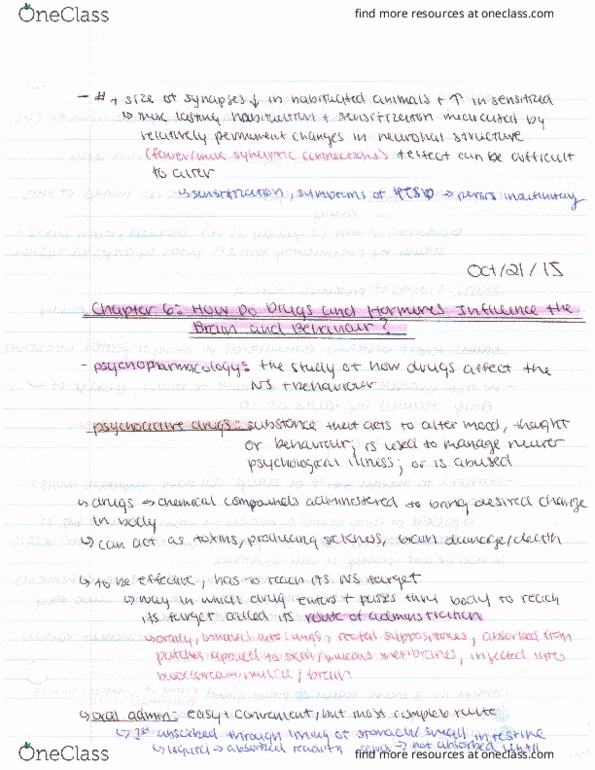 OneClass
find more resources at oneclass.com
- # + size of synapses ↓ in habituated animals + ↑ in sensitized
↳ thus, lasting habituation + sensitization mediated by
relatively permanent changes in neuronal structure
(fewer/more synaptic connections) + effect can be difficult
to alter
↳ sensitization, symptoms of PTSD → persist indefinitely
Oct/21/15
Chapter 6: How Do Drugs and Hormones Influence the
Brain and Behaviour?
- psychopharmacology: the study of how drugs affect the
NS + behaviour
- psychoactive drugs: substance that acts to alter mood, thought
or behaviour; is used to manage neuro
psychological illness; or is abused
↳ drugs → chemical compounds administered to bring desired change
in body
↳ can act as toxins, producing sickness, brain damage/death
↳ to be effective, has to reach its NS target
↳ way in which drug enters + passes thru body to reach
its target called its route of administration
↳ orally, inhaled into lungs, rectal suppositories, absorbed from
patches applied to skin/mucous membranes, injected into
bloodstream/muscle/brain
↳ oral admin: easy + convenient, but most complex route
↳ 1st absorbed through lining of stomach/small intestine
↳ liquid → absorbed readily → not absorbed until
OneClass
find more resources at oneclass.com